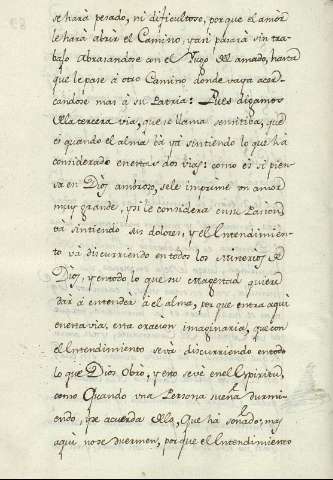 se hará pesado, ni dificultoso, porque el amor
le hará abrir el Camino, y ani pasará sin tra-
bajo Abrasandose con el Fuego del amado, hasta
que le pase á otro Camino donde vaya acer-
candose mas á su Patria: Pues digamos
della tercera via, que se llama sentitiba, que
es quando el alma bá ya sintiendo lo que há
considerado en estas dos vias: como es si pien-
sa en Dios amoroso, se le imprime un amor
muy grande, y si le considera en su Pasion,
bá sintiendo sus dolores, y el Entendimien-
to vá discurriendo en todos los Misterios de
Dios, y en todo lo que su Magestad quiere
dar á entender á el alma, porque entra aqui
en esta via, esta oracion imaginaria, que con
el Entendimiento se vá discurriendo en todo
lo que Dios Obro, y esto se vé en el Espiritu,
como Quando una Persona sueña durmi-
endo, se acuerda della, Que há soñado, mas
aqui no se duermen, porque el Entendimiento